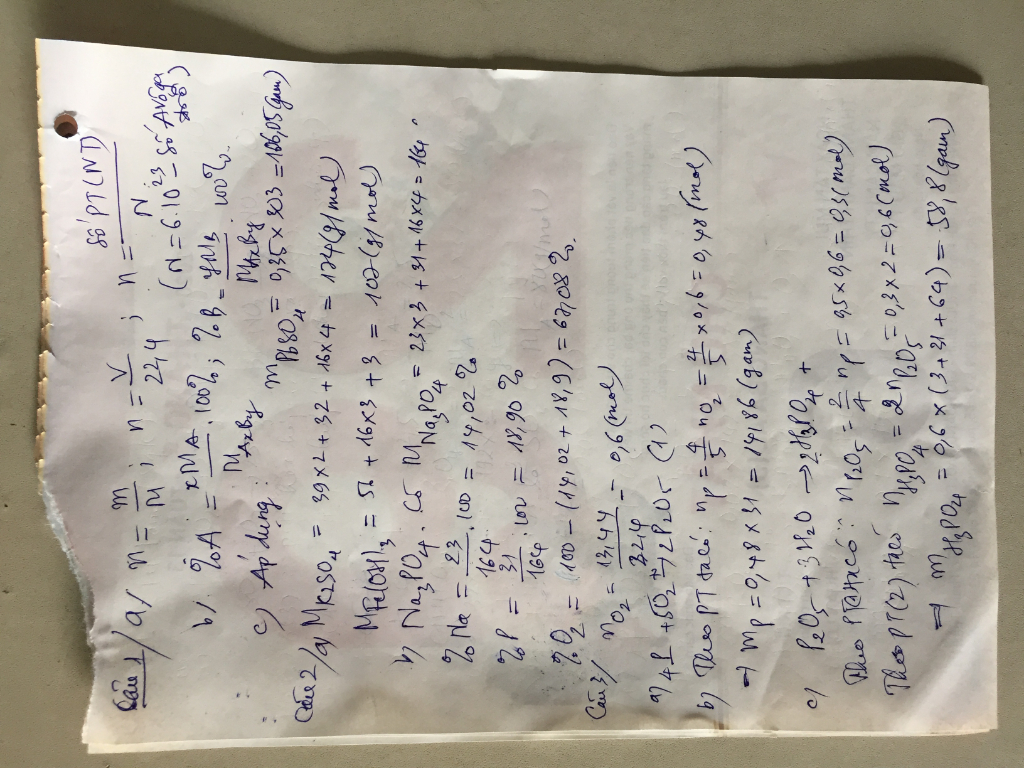 Câu 1/a/ n = m/M ; n = V/22,4 ; n = số PT(NT)/N
(N = 6.10^23 – số Avôgađrô)
b/ %A = xMA/MAxBy . 100% ; %B = yMB/MAxBy . 100%.
c) Áp dụng: mPbSO4 = 0,35 x 303 = 106,05 (gam)
Câu 2/a/ MK2SO4 = 39x2 + 32 + 16x4 = 174 (g/mol)
MFe(OH)3 = 56 + 16x3 + 3 = 107 (g/mol)
b) Na3PO4. Có MNa3PO4 = 23x3 + 31 + 16x4 = 164.
%Na = 23/164 . 100 = 14,02%
%P = 31/164 . 100 = 18,90%
%O2 = (100 – (14,02 + 18,9) = 67,08%.
Câu 3/ nO2 = 13,44/22,4 = 0,6 (mol)
a) 4P + 5O2 → 2P2O5 (1)
b) Theo PT ta có: nP = 4/5 nO2 = 4/5 x 0,6 = 0,48 (mol)
→ mP = 0,48 x 31 = 14,86 (gam)
c) P2O5 + 3H2O → 2H3PO4
Theo PT ta có: nP2O5 = 2/4 nP = 0,5 x 0,6 = 0,3 (mol)
Theo PT(2) ta có nH3PO4 = 2nP2O5 = 0,3 x 2 = 0,6 (mol)
⇒ mH3PO4 = 0,6 x (3 + 31 + 64) = 58,8 (gam)